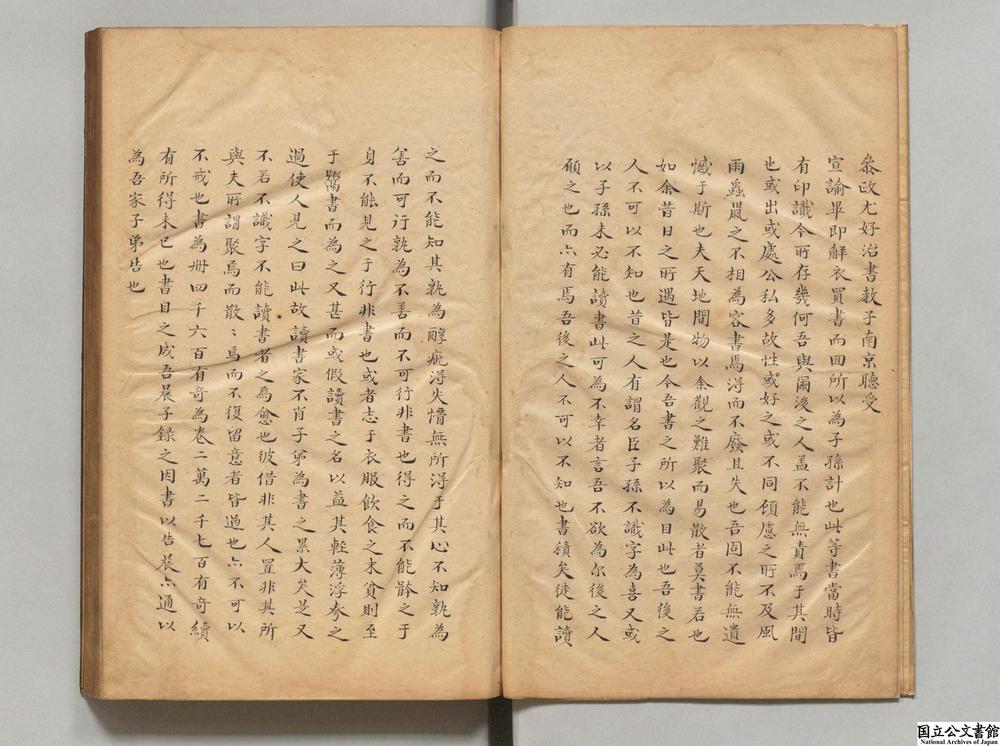 叅政尤好治書教子南京聽受
宣諭畢即觧衣買書而回所以為子孫計也此等書當時皆
有印識今所存幾何吾與爾後之人盖不能無責焉于其間
也或出或處公私多故性或好之或不同傾慮之所不及風
雨蟲鼠之不相為容書焉淂而不廢且失也吾固不能無遺
憾于斯也夫天地間物以余觀之難聚而易散者莫書若也
如余昔日之所遇皆是也今吾書之所以為目此也吾後之
人不可以不知也昔之人有謂名臣子孫不識字為喜又或
以子孫未必能讀書此可為不幸者言吾不欲為尔後之人
願之也而亦有焉吾後之人不可以不知也書積矣徒能讀
之而不能知其孰為醇疵淂失懵無所淂于其心不知孰為
善而可行孰為不善而不可行非書也得之而不能齡之于
身不能見之于行非書也或者志于衣服飲食之末貧則至
于鬻書而為之又甚而或假讀書之名以益其輕薄浮夸之
過使人見之曰此故讀書家不肖子弟為書之累大矣是又
不若不識字不能讀書者之為愈也彼借非其人置非其所
與夫所謂聚焉而散〻焉而不復留意者皆過也亦不可以
不戒也書為册四千六百有奇為卷二萬二千七百有奇續
有所得未已也書目之成吾晨子録之因書以告晨亦通以
為吾家子弟告也
国立公文書館
National Archives of Japan